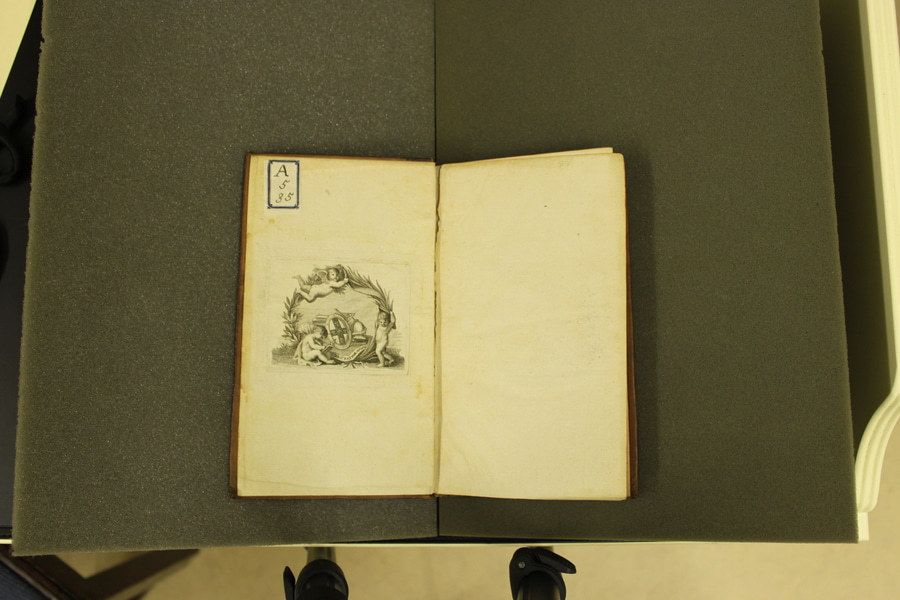 A
5
35